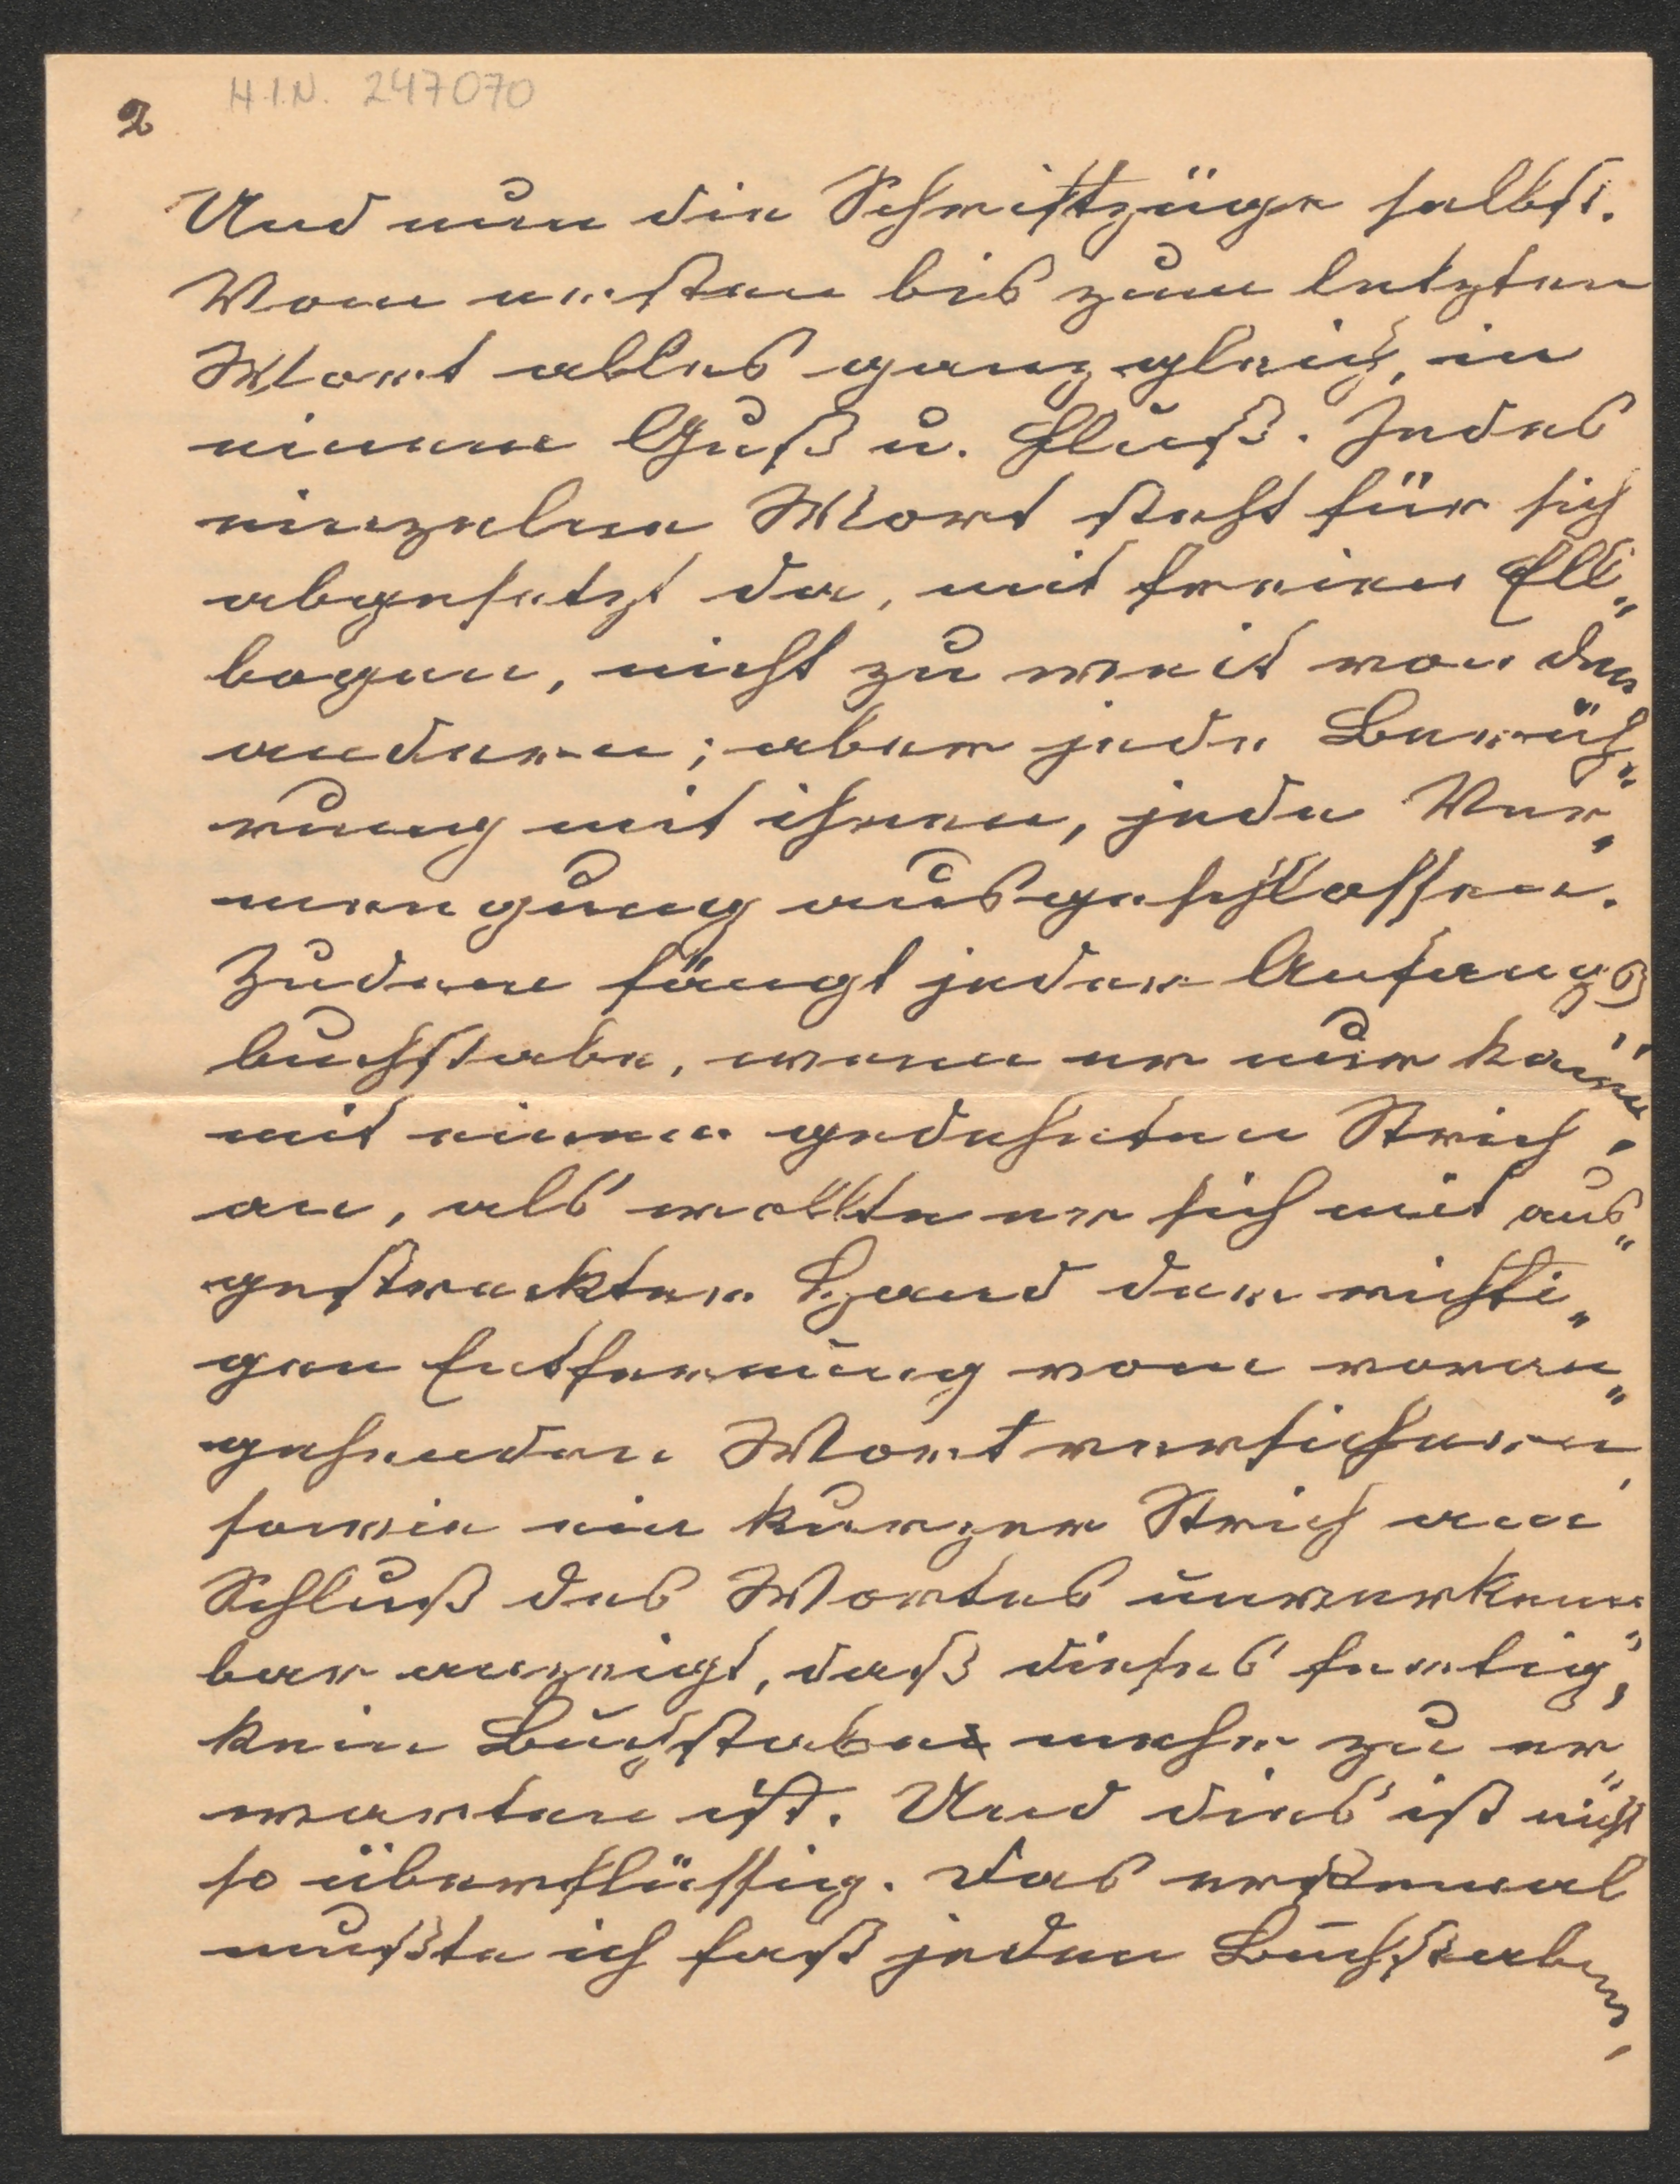 H.I.N. 247070
2
Und nun die Schriftzüge selbst.
Vom ersten bis zum letzten
Wort alles ganz gleich, in
einem Guß u. Fluß. Jedes
einzelne Wort steht für sich
abgesetzt da, mit freien Ell„
bogen, nicht zu weit von den
andern; aber jede Berüh„
rung mit ihnen, jede Ver„
mengung ausgeschlossen.
Zudem fängt jeder Anfangs
buchstabe, wenn er nur kann,
mit einem gedehnten Strich
an, als wollte er sich mit aus„
gestreckter Hand der richti„
gen Entfernung vom voran„
gehenden Wort versichern,
sowie ein kurzer Strich am
Schluß des Wortes unverkenn„
bar anzeigt, daß dieses fertig,
kein Buchstabe mehr zu er„
warten ist. Und dies ist nicht
so überflüssig. Das erstemal
mußte ich fast jeden Buchstaben,